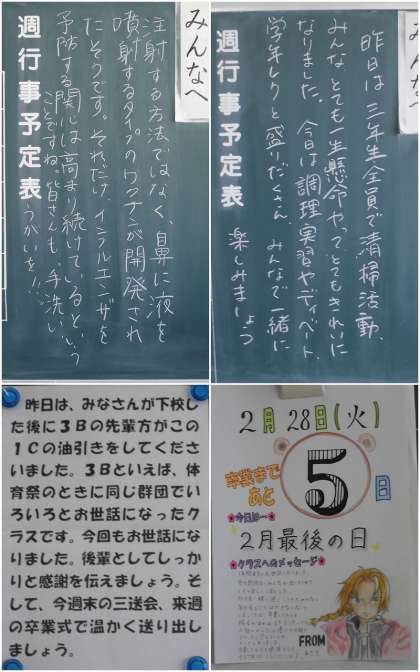 みんなへ
注射する方法ではなく、鼻に液を
噴射するタイプのワクチンが開発され
たそうです。それだけ、インフルエンザを
予防する関心は高まり続けているという
ことですね。皆さんも、手洗い
うがいを!!
週行事予定表
みんなへ
昨日は三年生全員で清掃活動、
みんなとても一生懸命やってとてもきれいに
なりました。今日は調理実習やディベート、
学年レクと盛りだくさん、みんなで一緒に
楽しみましょう
週行事予定表
昨日は、みなさんが下校し
た後に3Bの先輩方がこの
1Cの油引きをしてくださ
いました。3Bといえば、体
育祭のときに同じ群団でい
ろいろとお世話になったク
ラスです。今回もお世話にな
りました。後輩としてしっか
りと感謝を伝えましょう。そ
して、今週末の三送会、来週
の卒業式で温かく送り出し
ましょう。
2月28日(火)
卒業まで
あと
5
日
今日は…
2月最後の日
クラスへのメッセージ
FROM